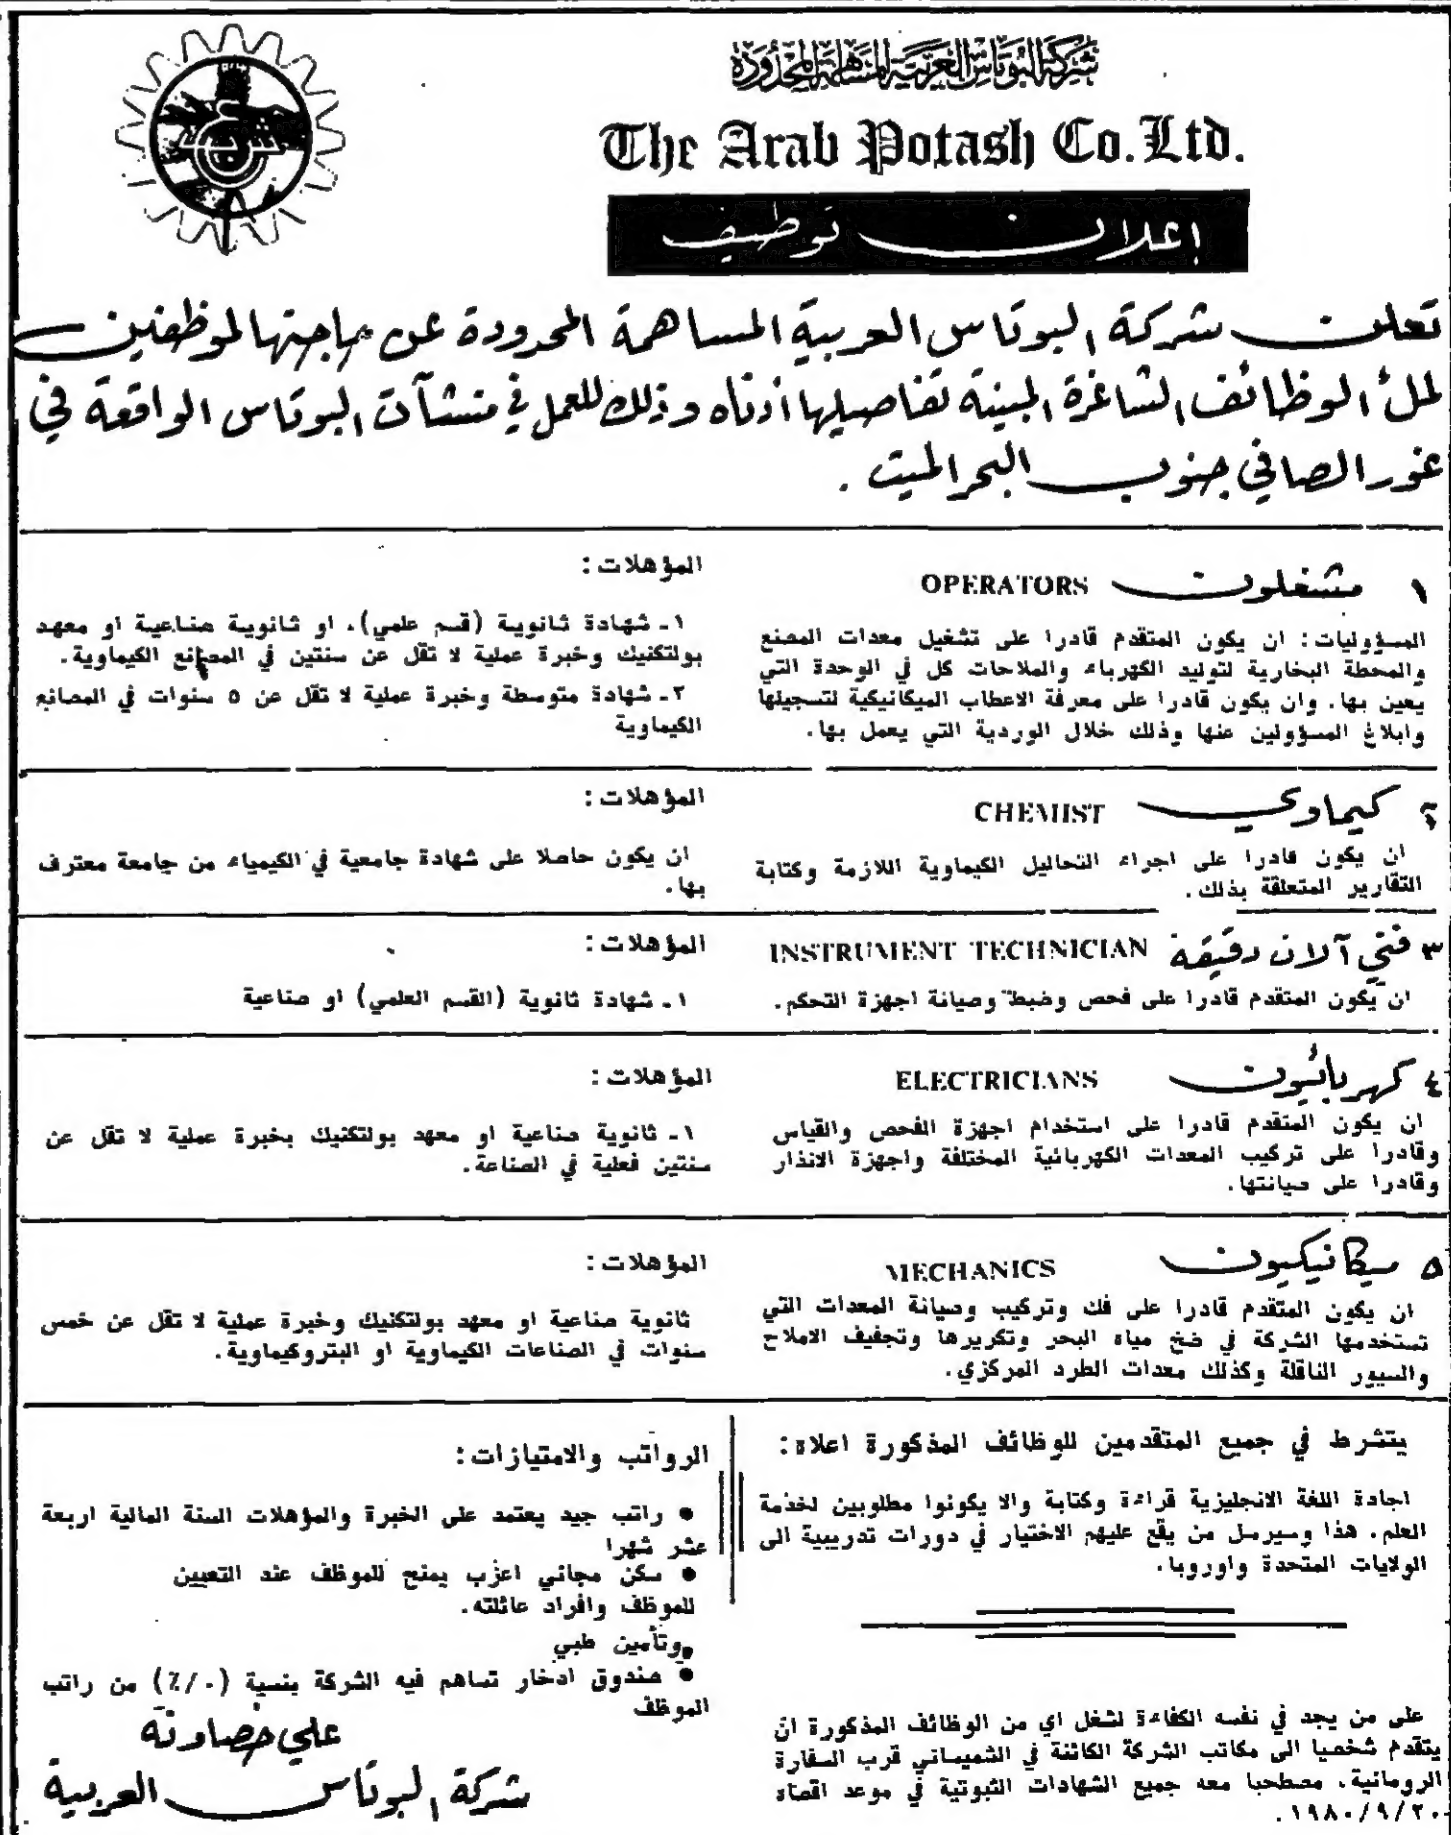 شركة البوتاس العربية المساهمة المحدودة
The Arab Potash Co. Ltd.
إعلان توظيف
تعلن شركة البوتاس العربية المساهمة المحدودة عن حاجتها لموظفين
لملء الوظائف الشاغرة المبينة تفاصيلها أدناه وذلك للعمل في منشآت البوتاس الواقعة في
غور الصافي جنوب البحر الميت .
١ مشغلون OPERATORS
المسؤوليات : ان يكون المتقدم قادرا على تشغيل معدات المصنع
والمحطة البخارية لتوليد الكهرباء والملاحات كل في الوحدة التي
يعين بها . وان يكون قادرا على معرفة الاعطاب الميكانيكية لتسجيلها
وابلاغ المسؤولين عنها وذلك خلال الوردية التي يعمل بها .
المؤهلات :
١ ـ شهادة ثانوية (قسم علمي) . او ثانوية صناعية او معهد
بولتكنيك وخبرة عملية لا تقل عن سنتين في المصانع الكيماوية .
٢ ـ شهادة متوسطة وخبرة عملية لا تقل عن ٥ سنوات في المصانع
الكيماوية
٢ كيماوي CHEMIST
ان يكون قادرا على اجراء التحاليل الكيماوية اللازمة وكتابة
التقارير المتعلقة بذلك .
المؤهلات :
ان يكون حاصلا على شهادة جامعية في الكيمياء من جامعة معترف
بها .
٣ فني آلات دقيقة INSTRUMENT TECHNICIAN
ان يكون المتقدم قادرا على فحص وضبط وصيانة اجهزة التحكم .
المؤهلات :
١ ـ شهادة ثانوية (القسم العلمي) او صناعية
٤ كهربائيون ELECTRICIANS
ان يكون المتقدم قادرا على استخدام اجهزة الفحص والقياس
وقادرا على تركيب المعدات الكهربائية المختلفة واجهزة الانذار
وقادرا على صيانتها .
المؤهلات :
١ ـ ثانوية صناعية او معهد بولتكنيك بخبرة عملية لا تقل عن
سنتين فعلية في الصناعة .
٥ ميكانيكيون MECHANICS
ان يكون المتقدم قادرا على فك وتركيب وصيانة المعدات التي
تستخدمها الشركة في ضخ مياه البحر وتكريرها وتجفيف الاملاح
والسيور الناقلة وكذلك معدات الطرد المركزي .
المؤهلات :
ثانوية صناعية او معهد بولتكنيك وخبرة عملية لا تقل عن خمس
سنوات في الصناعات الكيماوية او البتروكيماوية .
يتشرط في جميع المتقدمين للوظائف المذكورة اعلاه :
اجادة اللغة الانجليزية قراءة وكتابة والا يكونوا مطلوبين لخدمة
العلم . هذا وسيرسل من يقع عليهم الاختيار في دورات تدريبية الى
الولايات المتحدة واوروبا .
على من يجد في نفسه الكفاءة لشغل اي من الوظائف المذكورة ان
يتقدم شخصيا الى مكاتب الشركة الكائنة في الشميساني قرب السفارة
الرومانية . مصطحبا معه جميع الشهادات الثبوتية في موعد اقصاه
١٩٨٠/٩/٢٠ .
الرواتب والامتيازات :
● راتب جيد يعتمد على الخبرة والمؤهلات السنة المالية اربعة
عشر شهرا
● سكن مجاني اعزب يمنح للموظف عند التعيين
للموظف وافراد عائلته .
وتأمين طبي
● صندوق ادخار تساهم فيه الشركة بنسبة (٠/٪) من راتب
الموظف
علي خصاونة
شركة البوتاس العربية